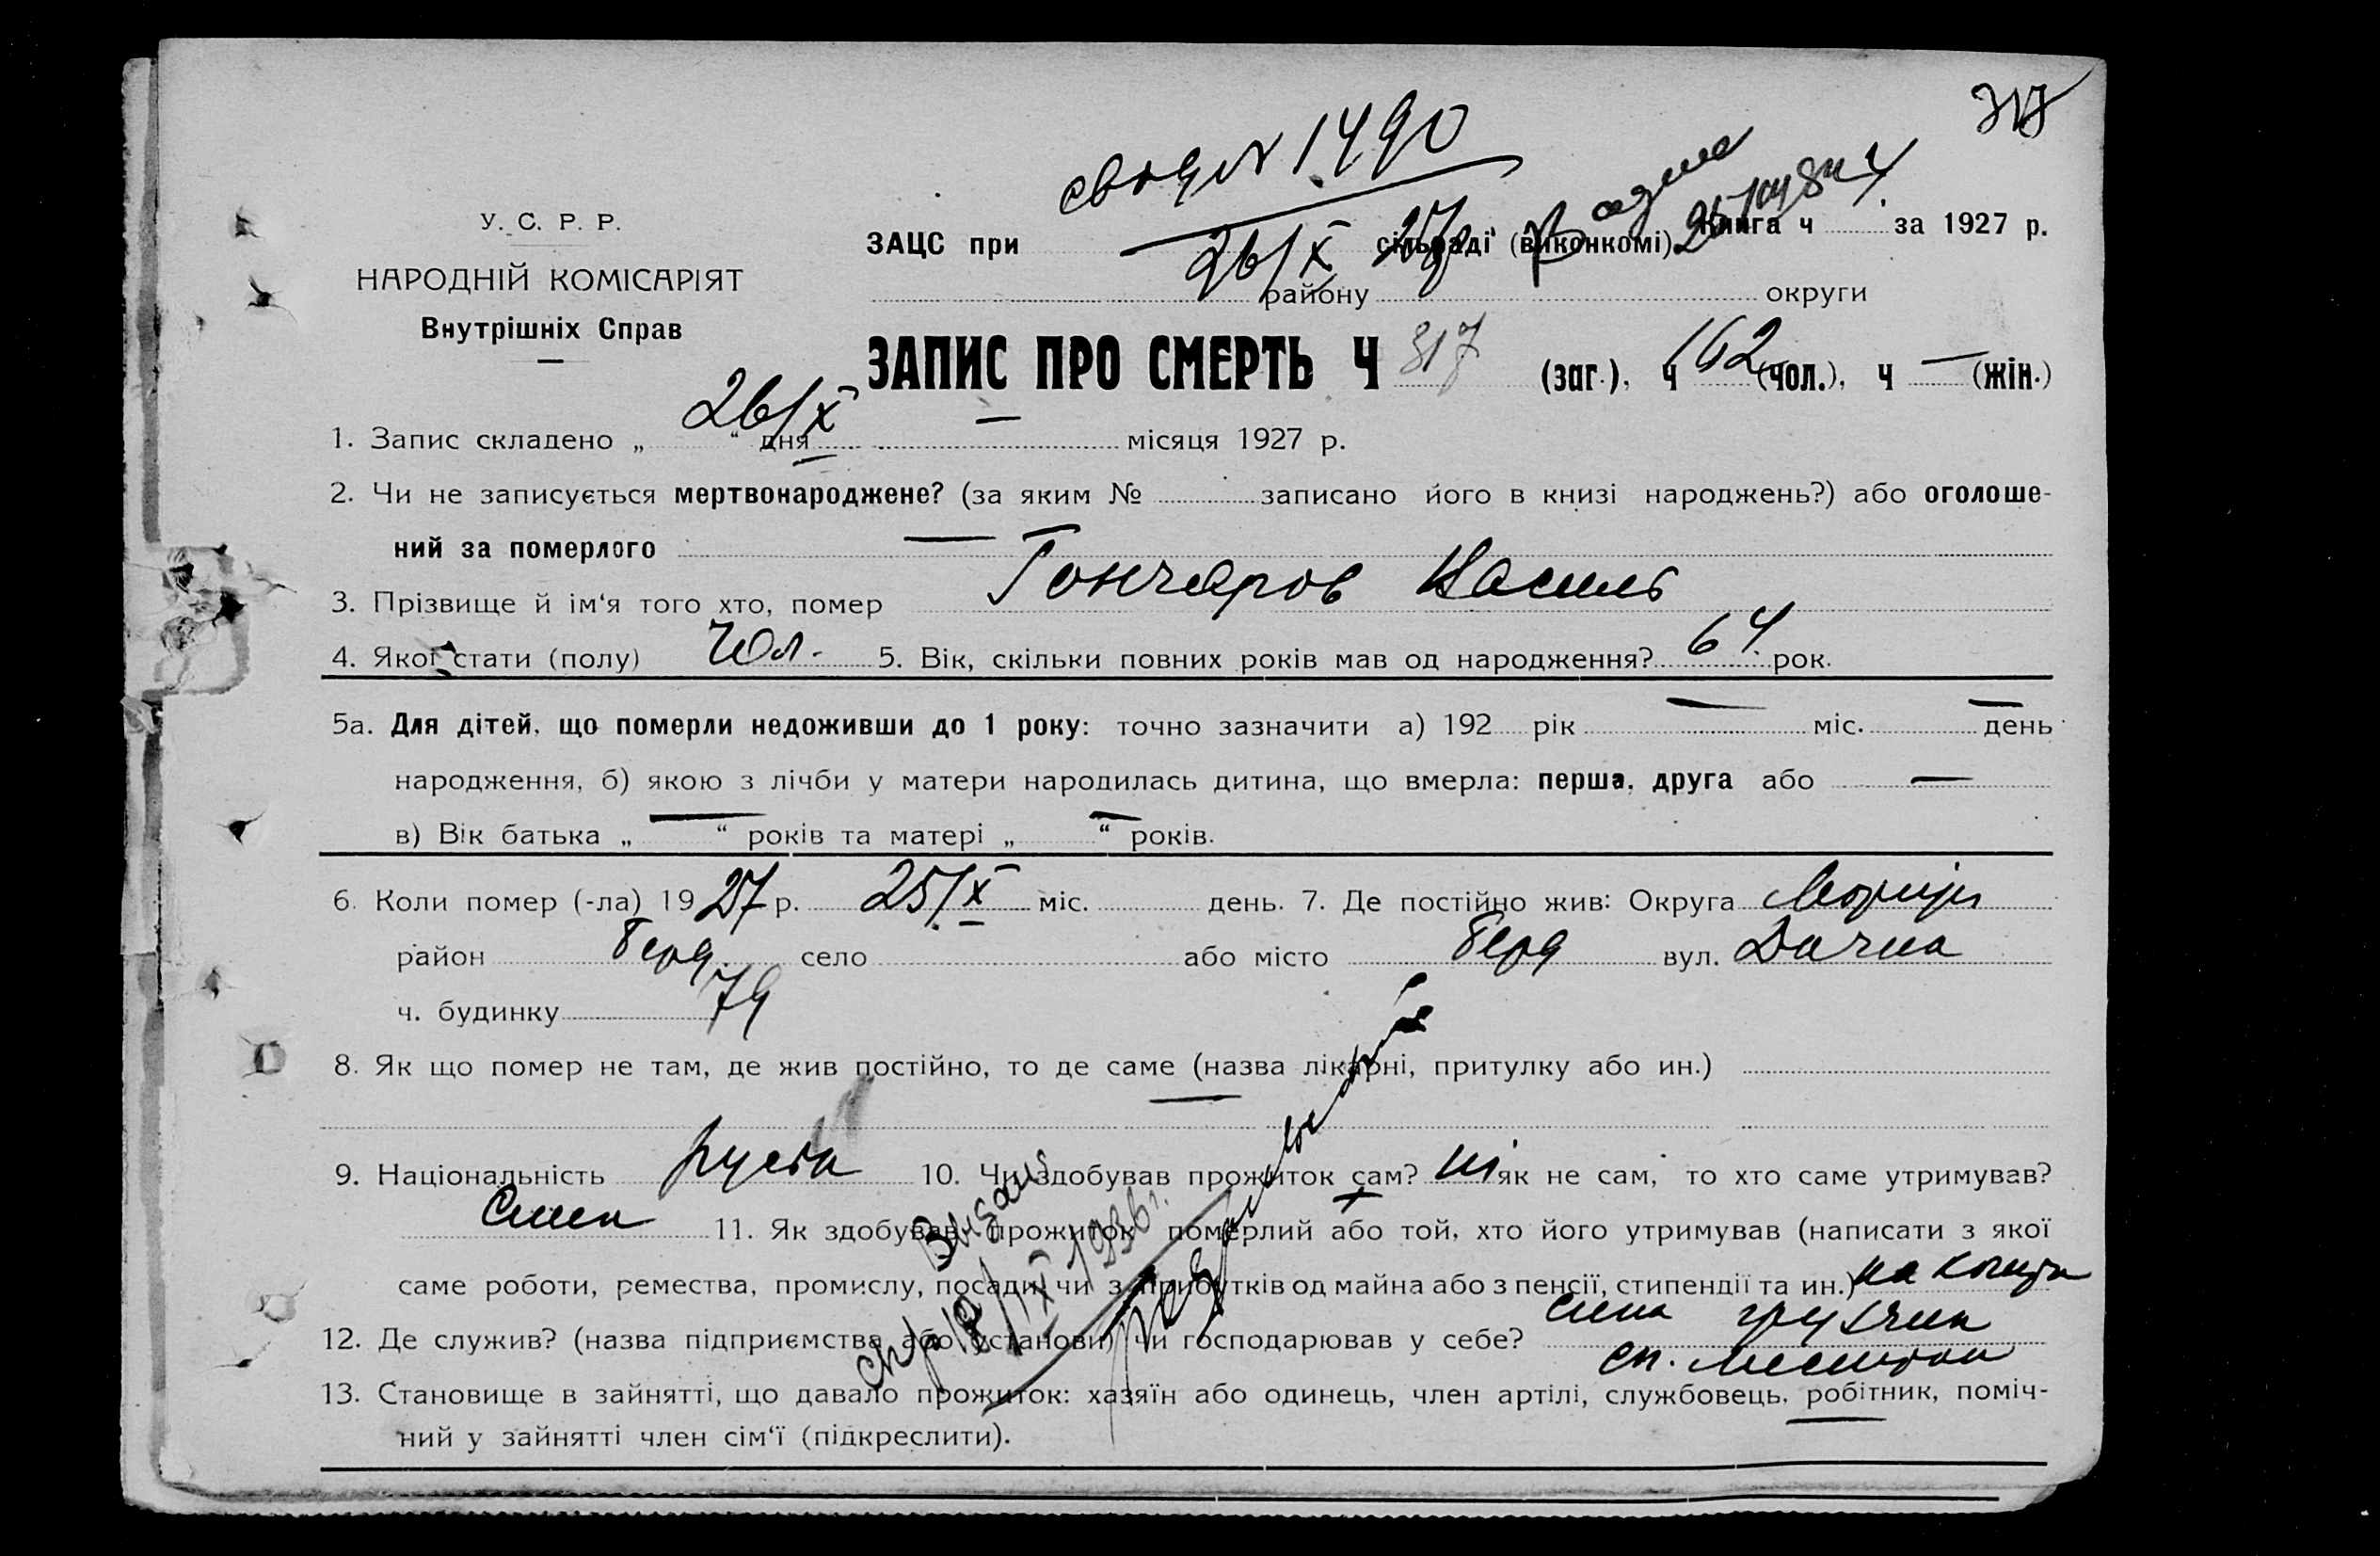 317
свид N 1490
У. С. Р. Р.
НАРОДНІЙ КОМІСАРІЯТ
Внутрішніх Справ
ЗАЦС при сільраді (виконкомі) Книга ч за 1927 р.
26/X 27р.
району округи
ЗАПИС ПРО СМЕРТЬ Ч 317 (заг.), ч 162 (чол.), ч — (жін.)
1. Запис складено „ 26/X “ дня — місяця 1927 р.
2. Чи не записується мертвонароджене? (за яким № записано його в книзі народжень?) або оголоше-
ний за померлого —
3. Прізвище й ім‘я того хто, помер Гончаров Василь
4. Якої стати (полу) Чол. 5. Вік, скільки повних років мав од народження? 64 рок.
5а. Для дітей, що померли недоживши до 1 року: точно зазначити а) 192 рік — міс. — день
народження, б) якою з лічби у матери народилась дитина, що вмерла: перша, друга або —
в) Вік батька „ — “ років та матері „ — “ років.
6. Коли помер (-ла) 1927 р. 25/X міс. день. 7. Де постійно жив: Округа Маріуп
район Берд. село або місто Берд вул. Дачна
ч. будинку 79
8. Як що помер не там, де жив постійно, то де саме (назва лікарні, притулку або ин.)
—
9. Національність 10. Чи здобував прожиток сам? ні як не сам, то хто саме утримував?
11. Як здобував прожиток померлий або той, хто його утримував (написати з якої
саме роботи, ремества, промислу, посади чи з прибутків од майна або з пенсії, стипендії та ин.) на кошти
сина
12. Де служив? (назва підприємства або установи) чи господарював у себе?
13. Становище в зайнятті, що давало прожиток: хазяїн або одинець, член артілі, службовець, робітник, поміч-
ний у зайнятті член сім‘ї (підкреслити).